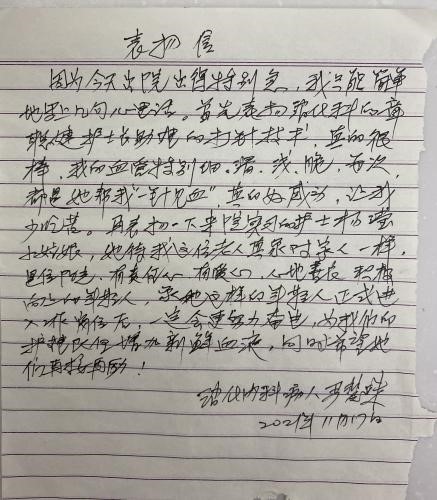 表扬信
因为今天出院出得特别急，我只能简单
地写上几句心里话。首先表扬消化科的章
护士长助理的打针技术，真的很
棒，我的血管特别细、滑、浅、脆，每次
都是她帮我“一针见血”，真的好感动，让我
少吃苦。再表扬一下来院实习的护士杨莹
小姑娘，她待我这位老人真象对家人一样，
有责任心、有爱心、心地善良、积极
向上的年轻人，像她这样的年轻人正式进
入工作岗位后，一定会更努力奋进，为我们的
护理队伍增加新鲜血液，同时希望她
们再接再励！
消化内科病人
2021年11月17日